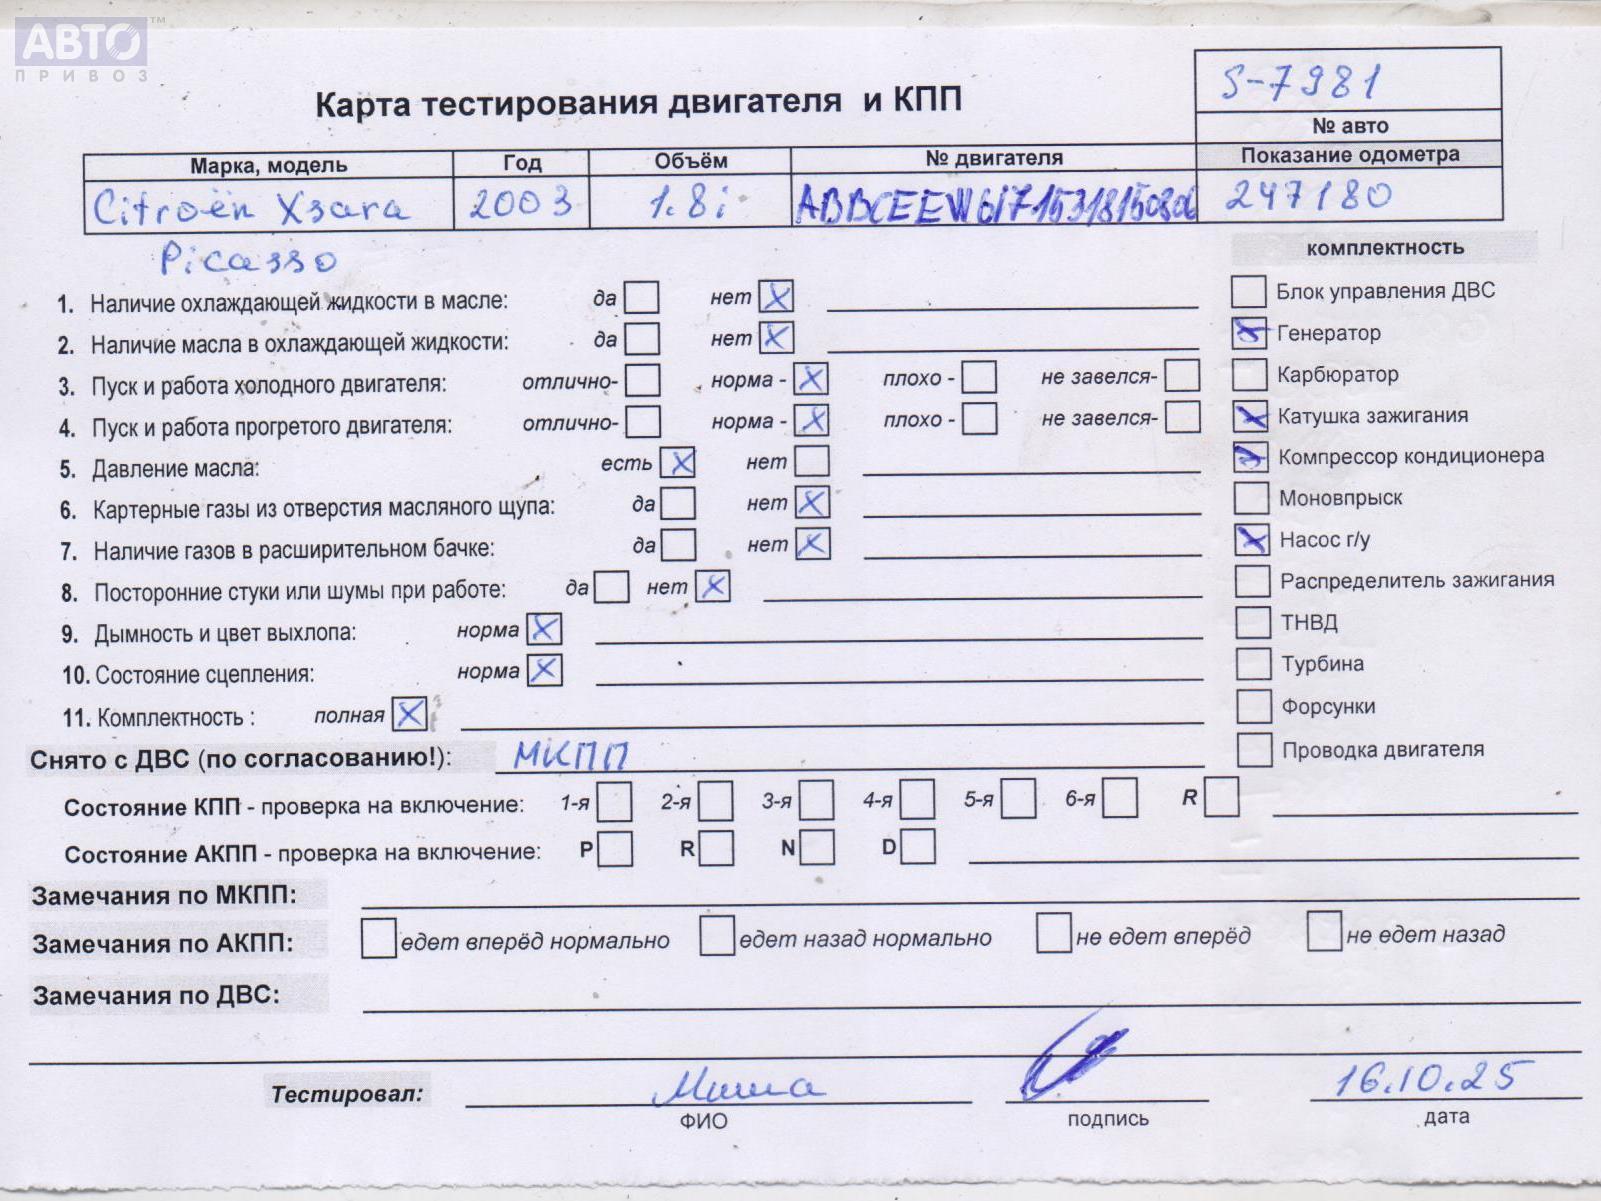 АВТО™
ПРИВОЗ
S-7981
Карта тестирования двигателя и КПП
№ авто
Марка, модель Год Объём № двигателя Показание одометра
Citroën Xsara 2003 1.8i 247180
Picasso
комплектность
1. Наличие охлаждающей жидкости в масле: да нет X
Блок управления ДВС
2. Наличие масла в охлаждающей жидкости: да нет X
Генератор
3. Пуск и работа холодного двигателя: отлично- норма - X плохо - не завелся-
Карбюратор
4. Пуск и работа прогретого двигателя: отлично- норма - X плохо - не завелся-
Катушка зажигания
5. Давление масла: есть X нет
Компрессор кондиционера
6. Картерные газы из отверстия масляного щупа: да нет X
Моновпрыск
7. Наличие газов в расширительном бачке: да нет X
Насос г/у
8. Посторонние стуки или шумы при работе: да нет X
Распределитель зажигания
9. Дымность и цвет выхлопа: норма X
ТНВД
10. Состояние сцепления: норма X
Турбина
11. Комплектность : полная X
Форсунки
Снято с ДВС (по согласованию!): МКПП
Проводка двигателя
Состояние КПП - проверка на включение: 1-я 2-я 3-я 4-я 5-я 6-я R
Состояние АКПП - проверка на включение: P R N D
Замечания по МКПП:
Замечания по АКПП: едет вперёд нормально едет назад нормально не едет вперёд не едет назад
Замечания по ДВС:
Тестировал: Миша 16.10.25
ФИО подпись дата